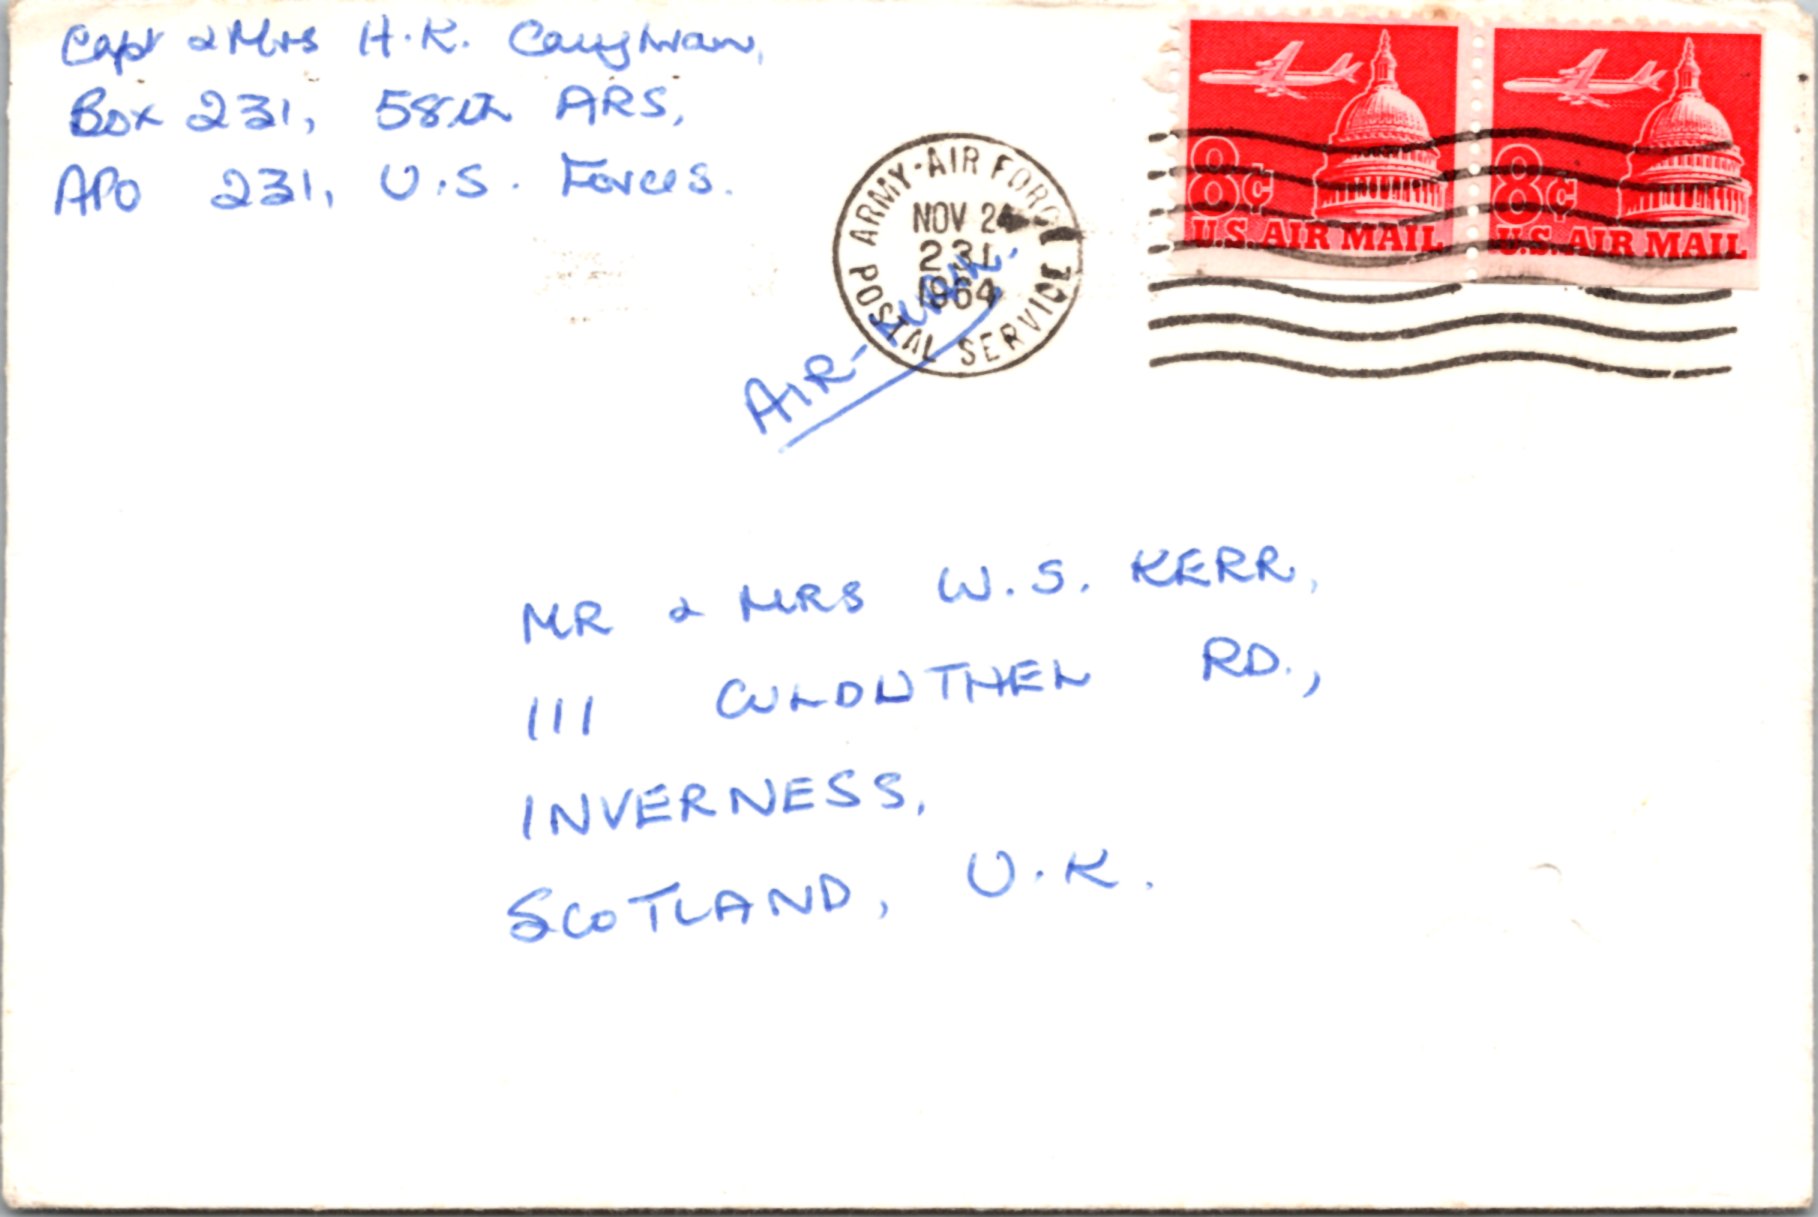 Capt & Mrs H.K. Caughman,
Box 231, 58th ARS,
APO 231, U.S. Forces.
ARMY-AIR FORCE
NOV 24
231
1964
POSTAL SERVICE
8¢
U.S. AIR MAIL
8¢
U.S. AIR MAIL
AIR-MAIL.
MR & MRS W.S. KERR,
111 CULDUTHEL RD.,
INVERNESS,
SCOTLAND, U.K.